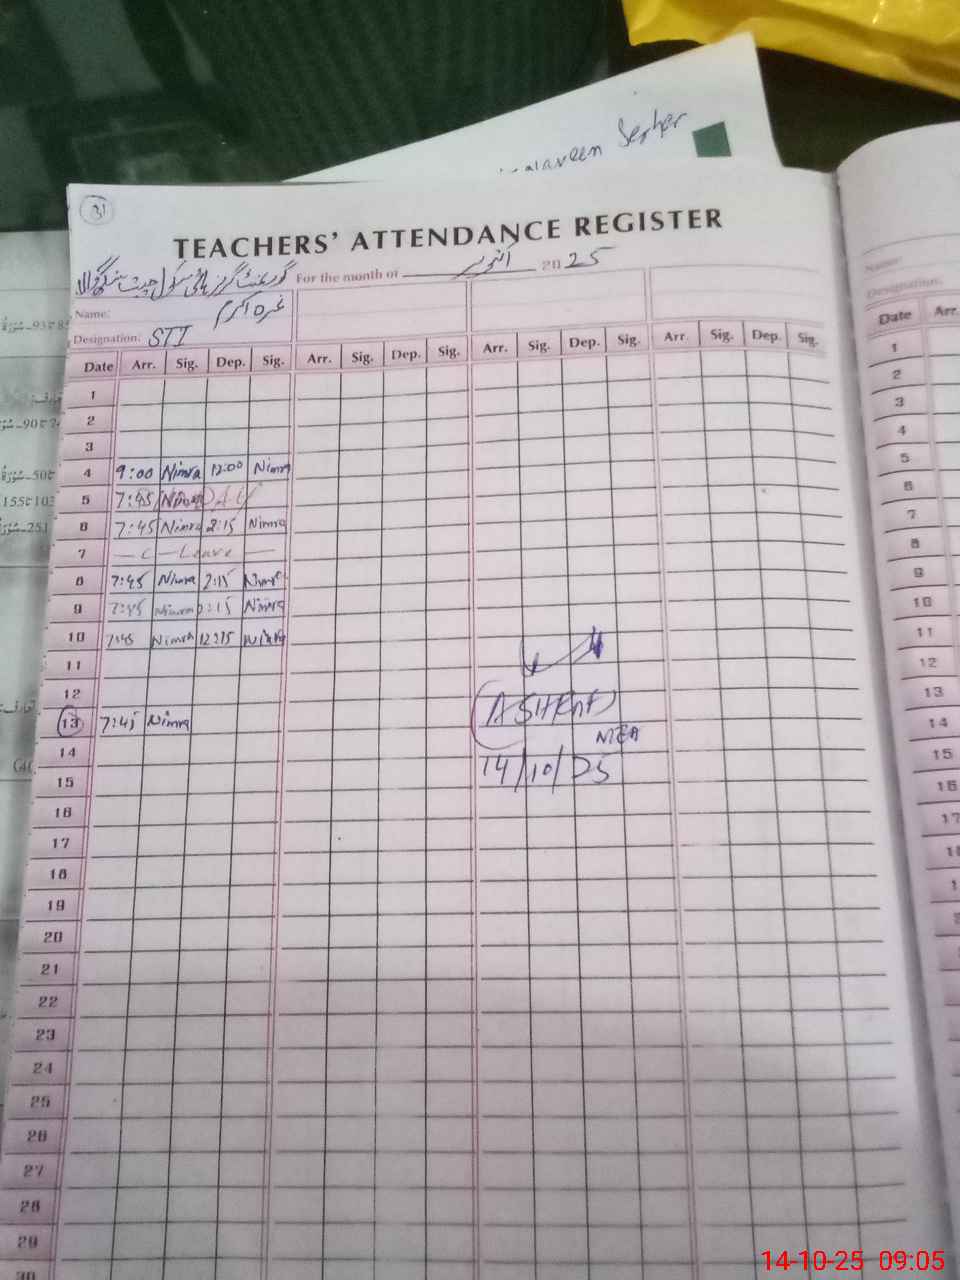 Seher
31
TEACHERS' ATTENDANCE REGISTER
گورنمنٹ گرلز ہائی سکول For the month of اکتوبر 2025
Name: نمرہ اکرم
Designation: STI
Date Arr. Sig. Dep. Sig. Arr. Sig. Dep. Sig. Arr. Sig. Dep. Sig. Arr. Sig. Dep. Sig.
1
2
3
4 9:00 Nimra 12:00 Nimra
5 7:45 Nimra
6 7:45 Nimra 2:15 Nimra
7 — C — Leave —
8 7:45 Nimra 2:15 Nimra
9 7:45 Nimra 2:15 Nimra
10 7:45 Nimra 12:15 Nimra
11
12
13 7:45 Nimra
14 MEA
15 14/10/25
16
17
18
19
20
21
22
23
24
25
26
27
28
29
30
Name:
Designation:
Date Arr.
1
2
3
4
5
6
7
8
9
10
11
12
13
14
15
16
17
14-10-25 09:05